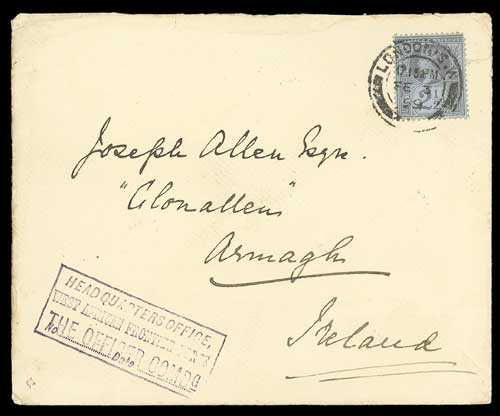 LONDON. S.W.
Joseph Allen Esqre.
"Clonallen"
Armagh
Ireland
HEAD QUARTERS OFFICE,
WEST AFRICAN FRONTIER FORCE
THE OFFICER COMDG
No. Date